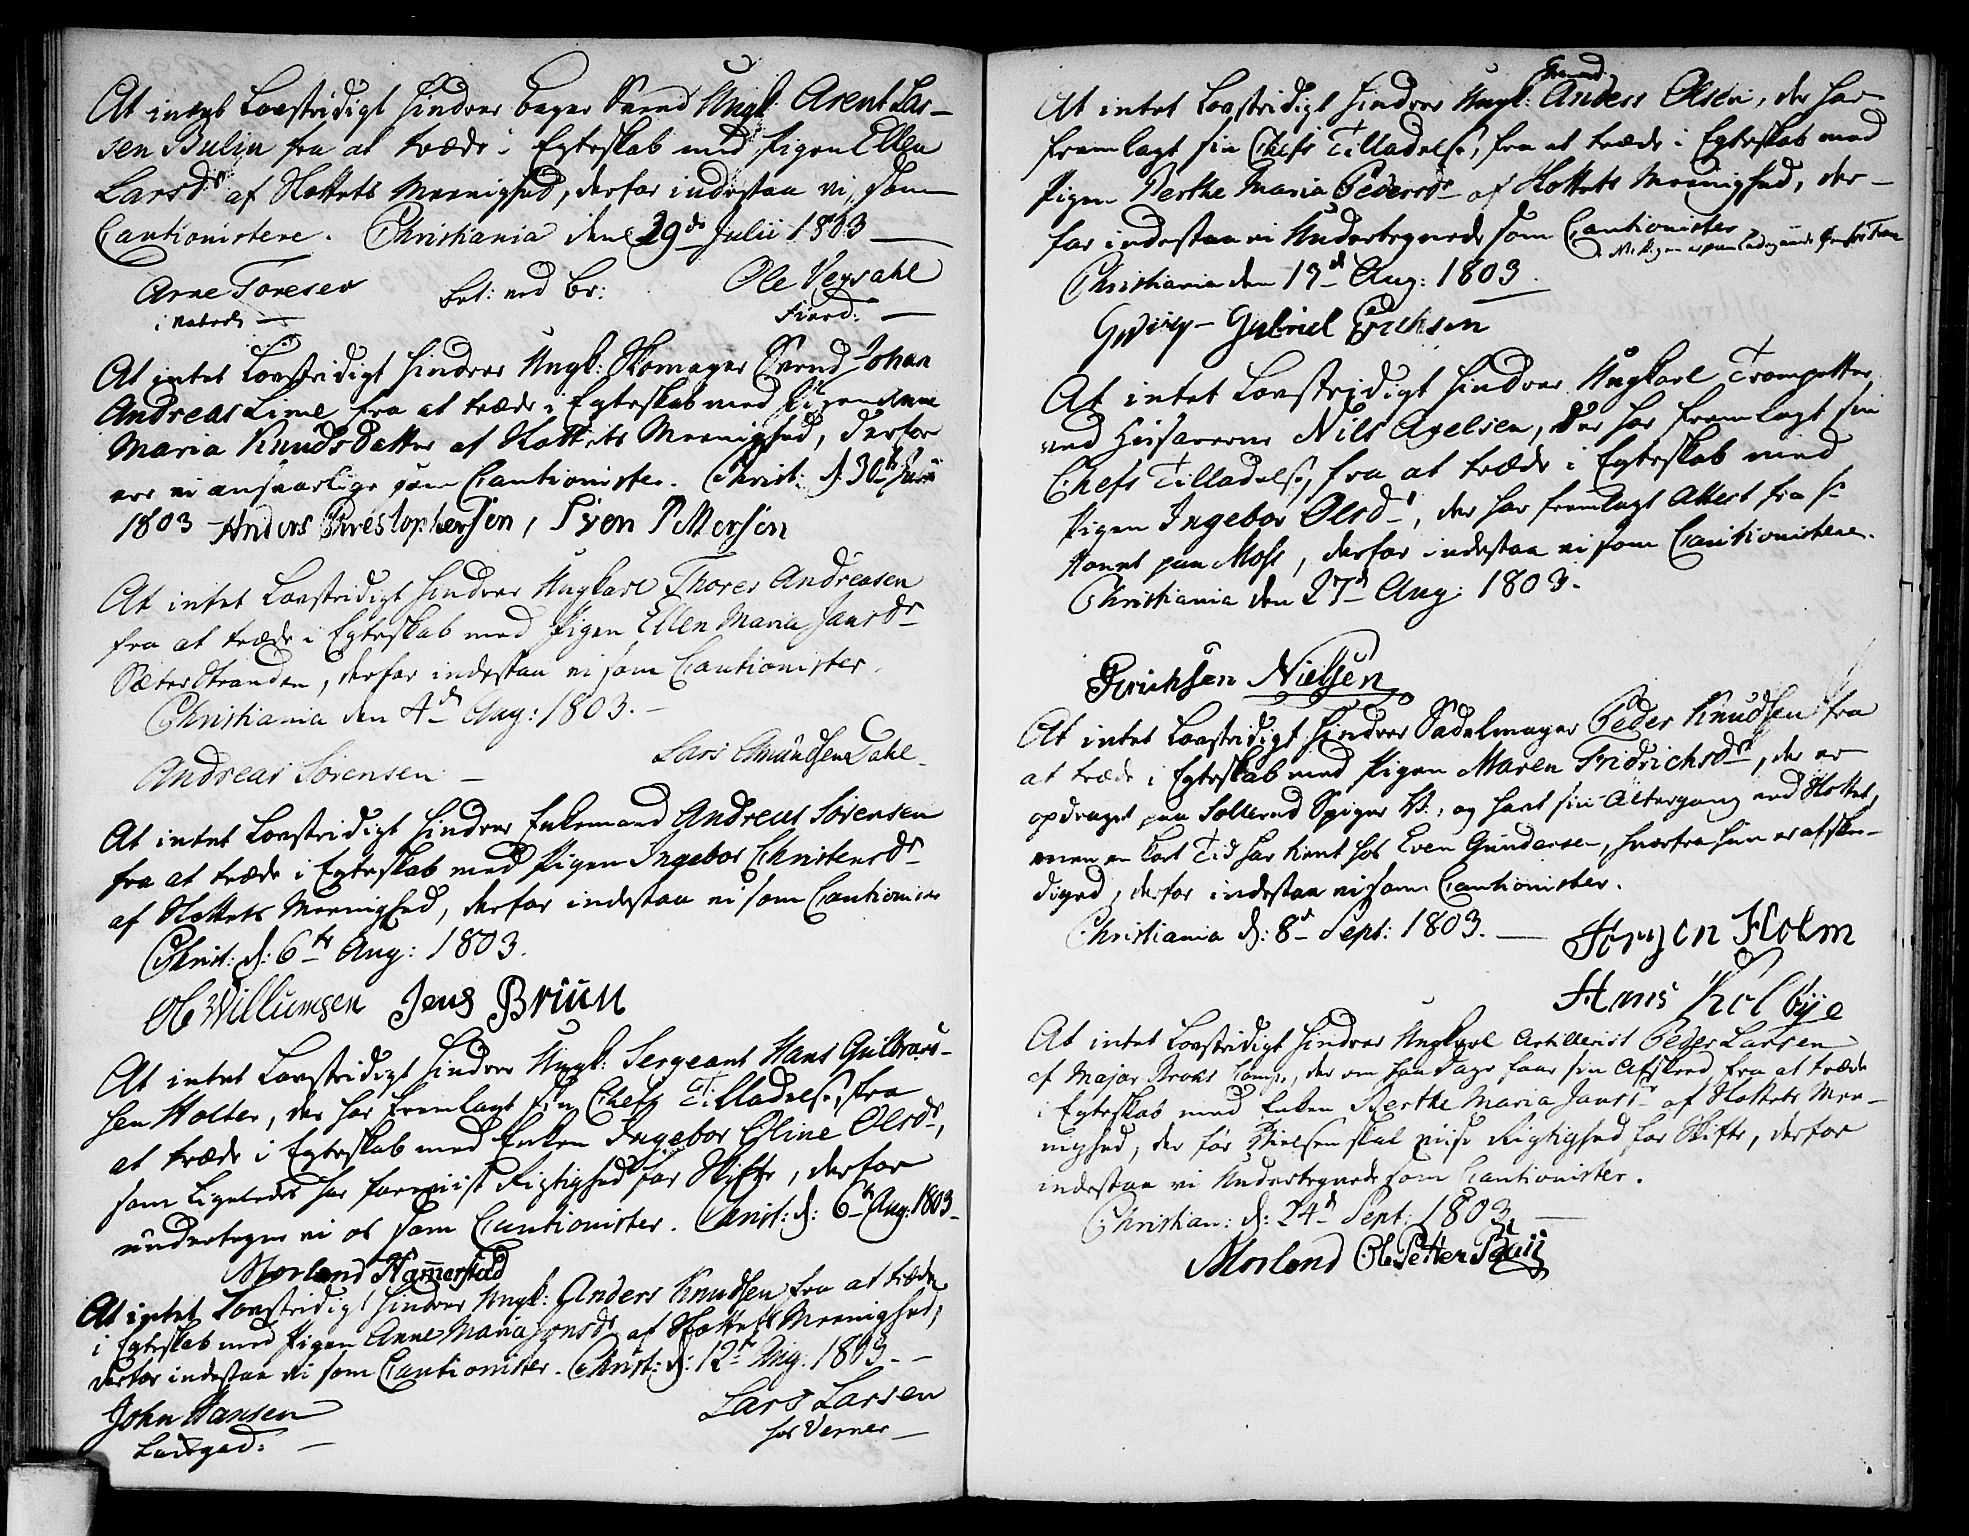 At intet Lovstridigt hindrer Bager Svend Ungk: Arent Lar-
sen Bulin fra at træde i Egteskab med Pigen Ellen
Larsdr af Slottets Meenighed, derfor indestaa vi, som
Cautionistere. Christiania den 29de Julii 1803
Arne Toresen Bet: ved Br: Ole Vegdahl
Fierd:
At intet Lovstridigt hindrer Ungk: Skomager Svend Johan
Andreas Lime fra at træde i Egteskab med Pigen Anne
Maria Knuds Datter af Slottets Meenighed, derfor
ere vi ansvarlige som Cautionister. Christ: d: 30te Julii
1803 Anders Chrestophersen, Sven Pettersen
At intet Lovstridigt hindrer Ungkarl Thorer Andreasen
fra at træde i Egteskab med Pigen Ellen Maria Jansdr
Sæter Stranden, derfor indestaa vi som Cautionister.
Christiania den 4de Aug: 1803.
Andreas Sørensen Lars Amundsen Dahl
At intet Lovstridigt hindrer Enkemand Andreas Sørensen
fra at træde i Egteskab med Pigen Ingebor Christensdr
af Slottets Meenighed, derfor indestaa vi som Cautionister
Christ: d: 6te Aug: 1803.
Ole Willumsen Jens Bruun
At intet Lovstridigt hindrer Ungk: Sergeant Hans Gulbrand-
sen Holter, der har fremlagt sin Chefs Tilladelse, fra
at træde i Egteskab med Enken Ingebor Eline Olsdr,
som ligeledes har foreviist Rigtighed for Skifte, derfor
undertegne vi os som Cautionister. Christ: d: 6te Aug: 1803
Morland Hammerstad
At intet Lovstridigt hindrer Ungk: Anders Knudsen fra at træde
i Egteskab med Pigen Anne Maria Jensdr af Slottets Meenighed,
derfor indestaa vi som Cautionister. Christ: d: 12te Aug: 1803.
John Hansen Lars Larsen
hos Verner
Svend
At intet Lovstridigt hindrer Ungk: Anders Olsen, der har
fremlagt sin Chefs Tilladelse, fra at træde i Egteskab med
Pigen Berthe Maria Pedersdr af Slottets Meenighed, der-
for indestaa vi Undertegnede som Cautionister
Christiania den 17de Aug: 1803.
Gabriel Erichsen
At intet Lovstridigt hindrer Ungkarl Trompetter
ved Husarerne Nils Axelsen, der har fremlagt sin
Chefs Tilladelse, fra at træde i Egteskab med
Pigen Ingebor Olsdr, der har fremlagt Attest fra Hr
paa Moss, derfor indestaa vi som Cautionistere.
Christiania den 27de Aug: 1803.
Erichsen Nielsen
At intet Lovstridigt hindrer Sadelmager Peder Knudsen fra
at træde i Egteskab med Pigen Maren Fridrichsdr, der er
opdraget paa Sollerud Spiger V:, og havt sin Altergang ved Slottet,
men en kort Tid har tient hos Even Gundersen, hvorfra hun er afske-
diged, derfor indestaa vi som Cautionister.
Christiania d: 8de Sept: 1803. Jørgen Holm
Hans Kolbye
At intet Lovstridigt hindrer Ungkarl Artillerist Peder Larsen
af Major Brocks Comp:, der om faa Dage faar sin Afskeed fra at træde
i Egteskab med Enken Berthe Maria Jansdr af Slottets Mee-
nighed, der før Vielsen skal viise Rigtighed for Skifte, derfor
indestaa vi Undertegnede som Cautionister.
Christian: d: 24de Sept: 1803.
Morland Ole Petter